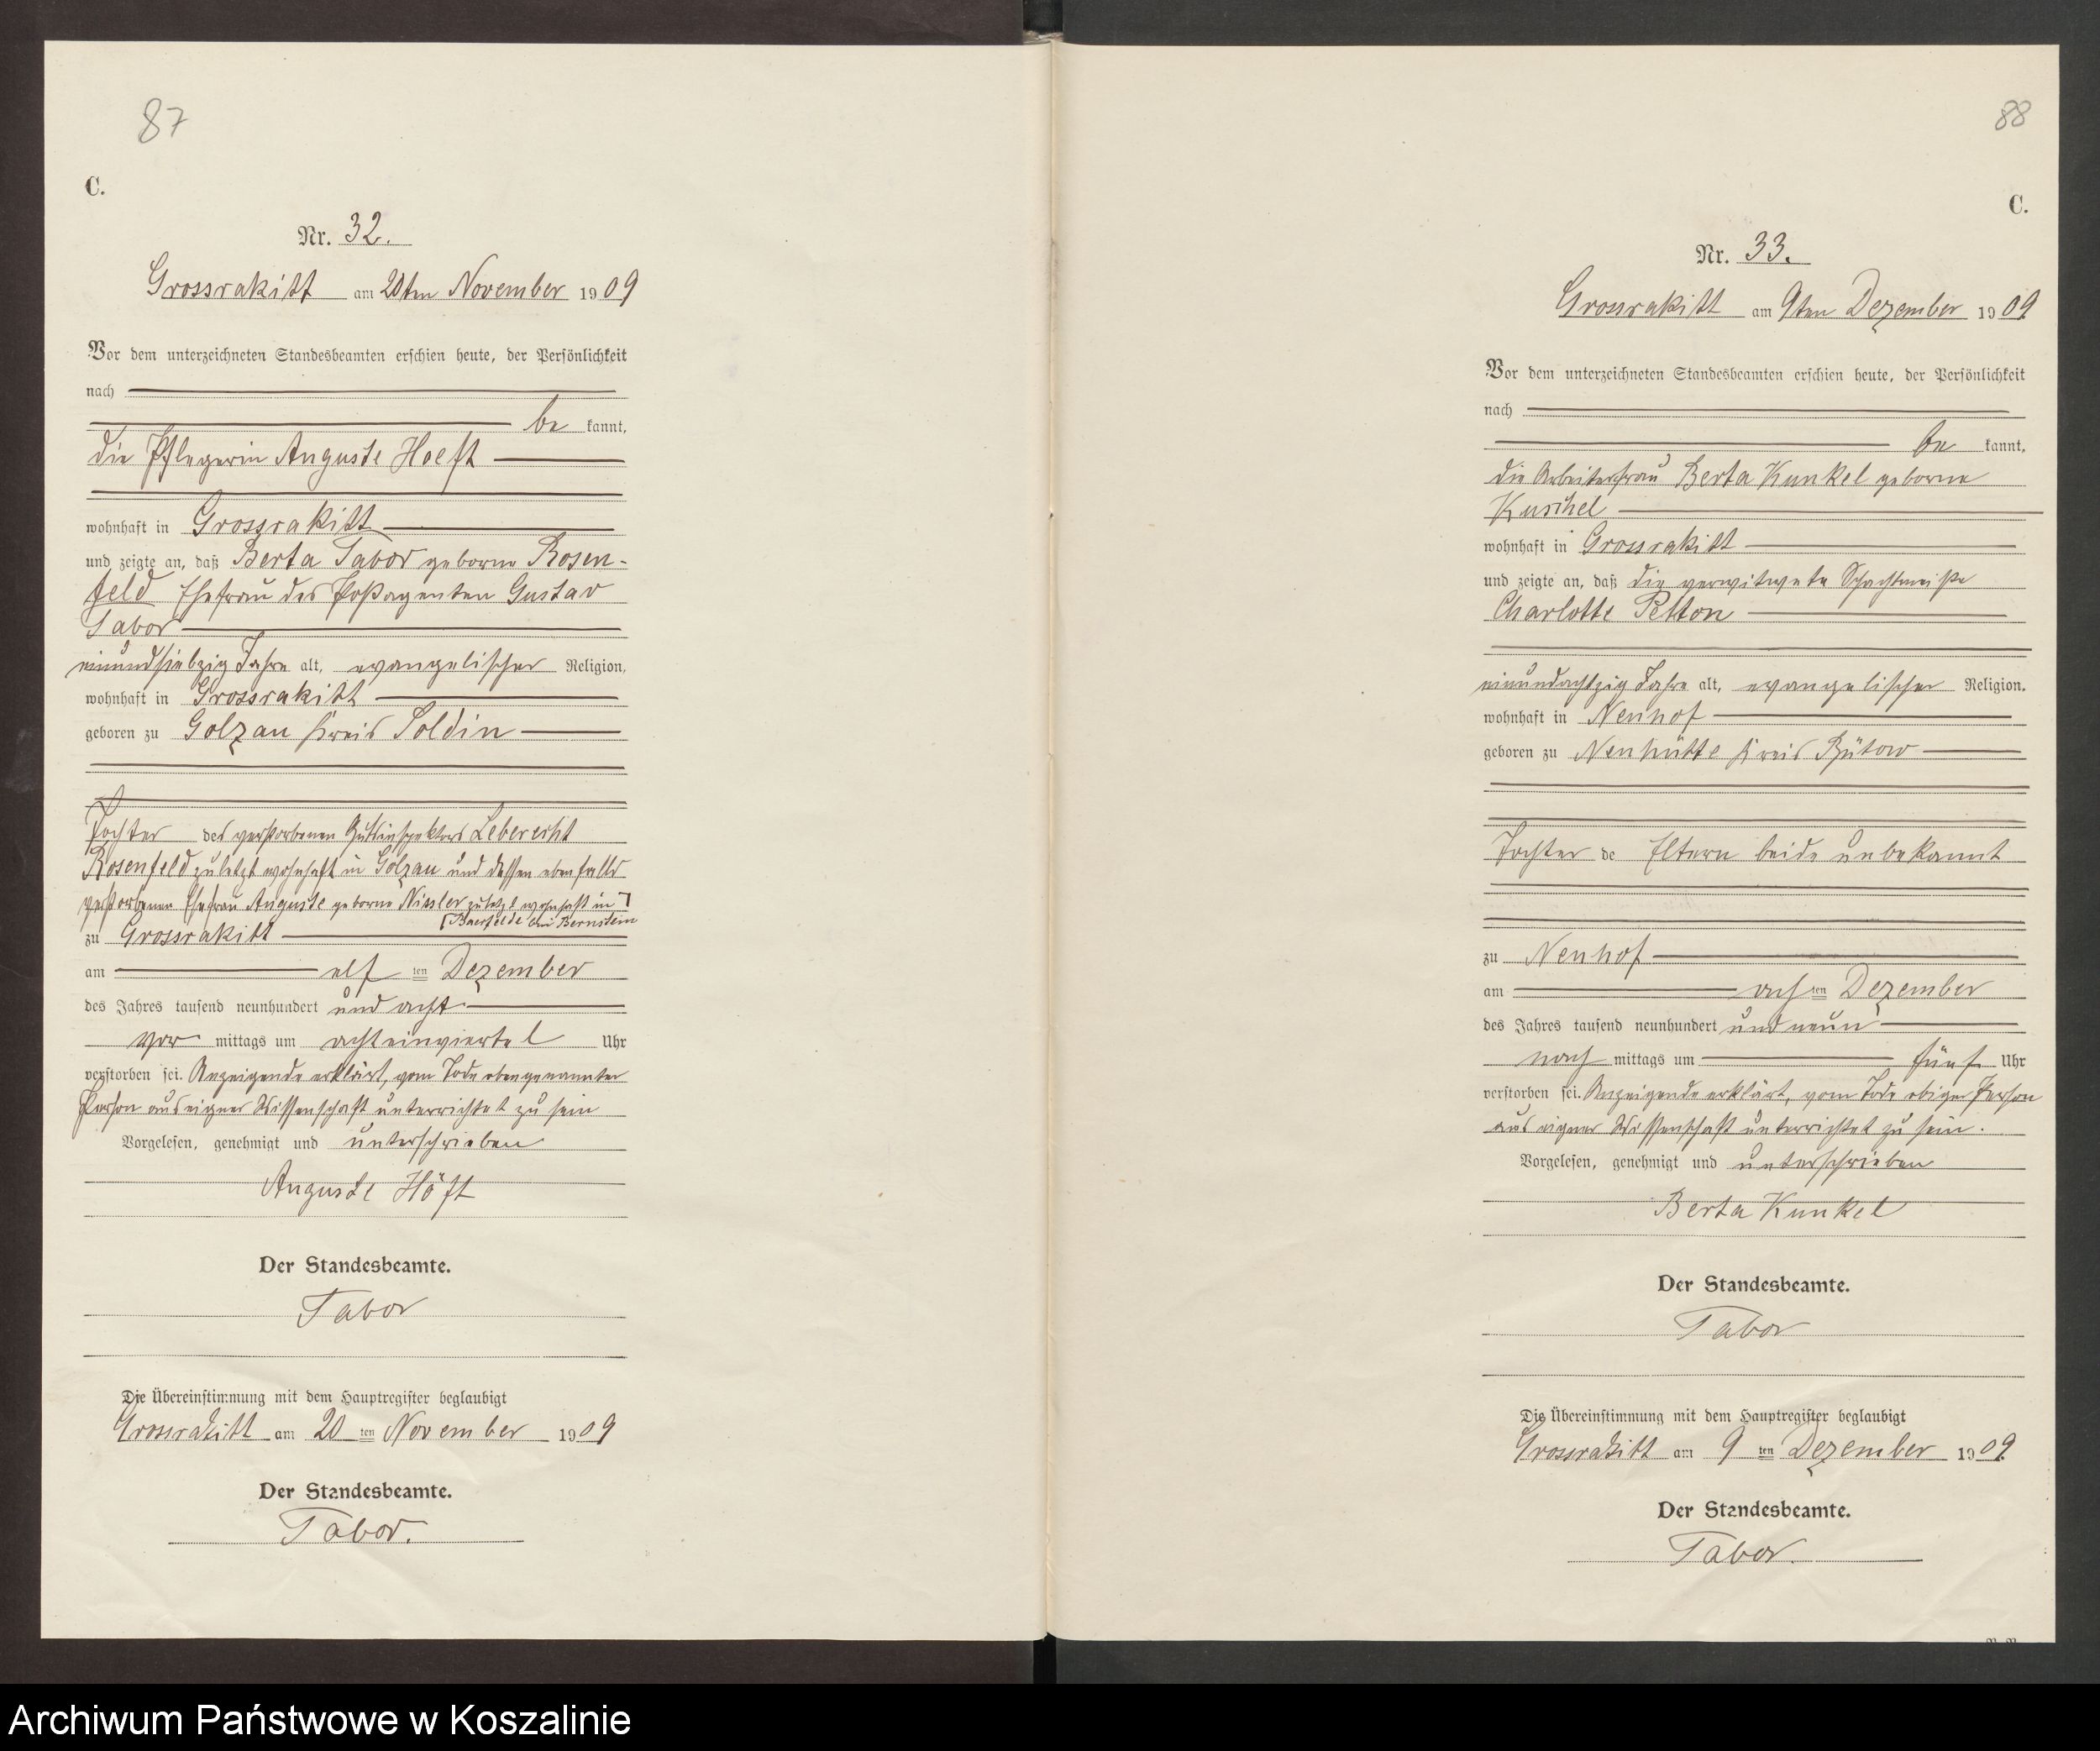 87
C.
Nr. 32.
Grossrakitt am 20ten November 1909
Vor dem unterzeichneten Standesbeamten erschien heute, der Persönlichkeit
nach
be kannt,
die Pflegerin Auguste Hoeft
wohnhaft in Grossrakitt
und zeigte an, daß Berta Tabor geborne Rosen-
feld Ehefrau des Postagenten Gustav
Tabor
einundsiebzig Jahre alt, evangelischer Religion,
wohnhaft in Grossrakitt
geboren zu Golzau Kreis Soldin
Tochter des verstorbenen Gutsinspektors Leberecht
Rosenfeld zuletzt wohnhaft in Golzau und dessen ebenfalls
verstorbenen Ehefrau Auguste geborne zuletzt wohnhaft in
Baerfelde bei Bernstein
zu Grossrakitt
am elf ten Dezember
des Jahres tausend neunhundert und acht
vor mittags um achteinviertel Uhr
verstorben sei. Anzeigende erklärt, vom Tode obengenannter
Person aus eigner Wissenschaft unterrichtet zu sein
Vorgelesen, genehmigt und unterschrieben
Auguste Höft
Der Standesbeamte.
Tabor
Die Übereinstimmung mit dem Hauptregister beglaubigt
Grossrakitt am 20 ten November 1909
Der Standesbeamte.
Tabor.
88
C.
Nr. 33.
Grossrakitt am 9ten Dezember 1909
Vor dem unterzeichneten Standesbeamten erschien heute, der Persönlichkeit
nach
be kannt,
die Arbeiterfrau Berta Kunkel geborne
Kuschel
wohnhaft in Grossrakitt
und zeigte an, daß die verwitwete
Charlotte Petton
einundachtzig Jahre alt, evangelischer Religion,
wohnhaft in Neuhof
geboren zu Neuhütte Kreis Bütow
Tochter de Eltern beide unbekannt
zu Neuhof
am ach ten Dezember
des Jahres tausend neunhundert und neun
nach mittags um fünf Uhr
verstorben sei. Anzeigende erklärt, vom Tode obiger Person
aus eigner Wissenschaft unterrichtet zu sein.
Vorgelesen, genehmigt und unterschrieben
Berta Kunkel
Der Standesbeamte.
Tabor
Die Übereinstimmung mit dem Hauptregister beglaubigt
Grossrakitt am 9 ten Dezember 1909.
Der Standesbeamte.
Tabor.
Archiwum Państwowe w Koszalinie